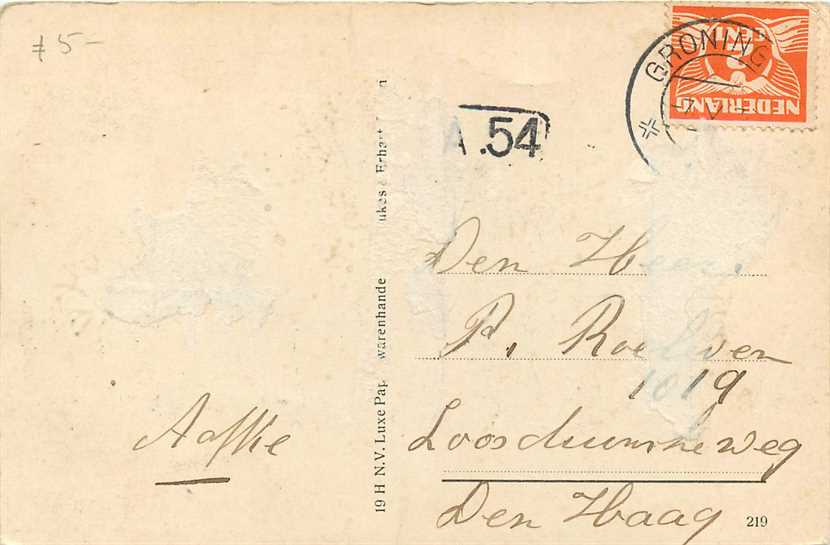 5-
GRONING
CENT
NEDERLAND
.54
Den Heer
P. Roeleven
1019
Aafke
Loosduinscheweg
Den Haag
219
19 H N.V. Luxe Pap warenhande ukes Erhart